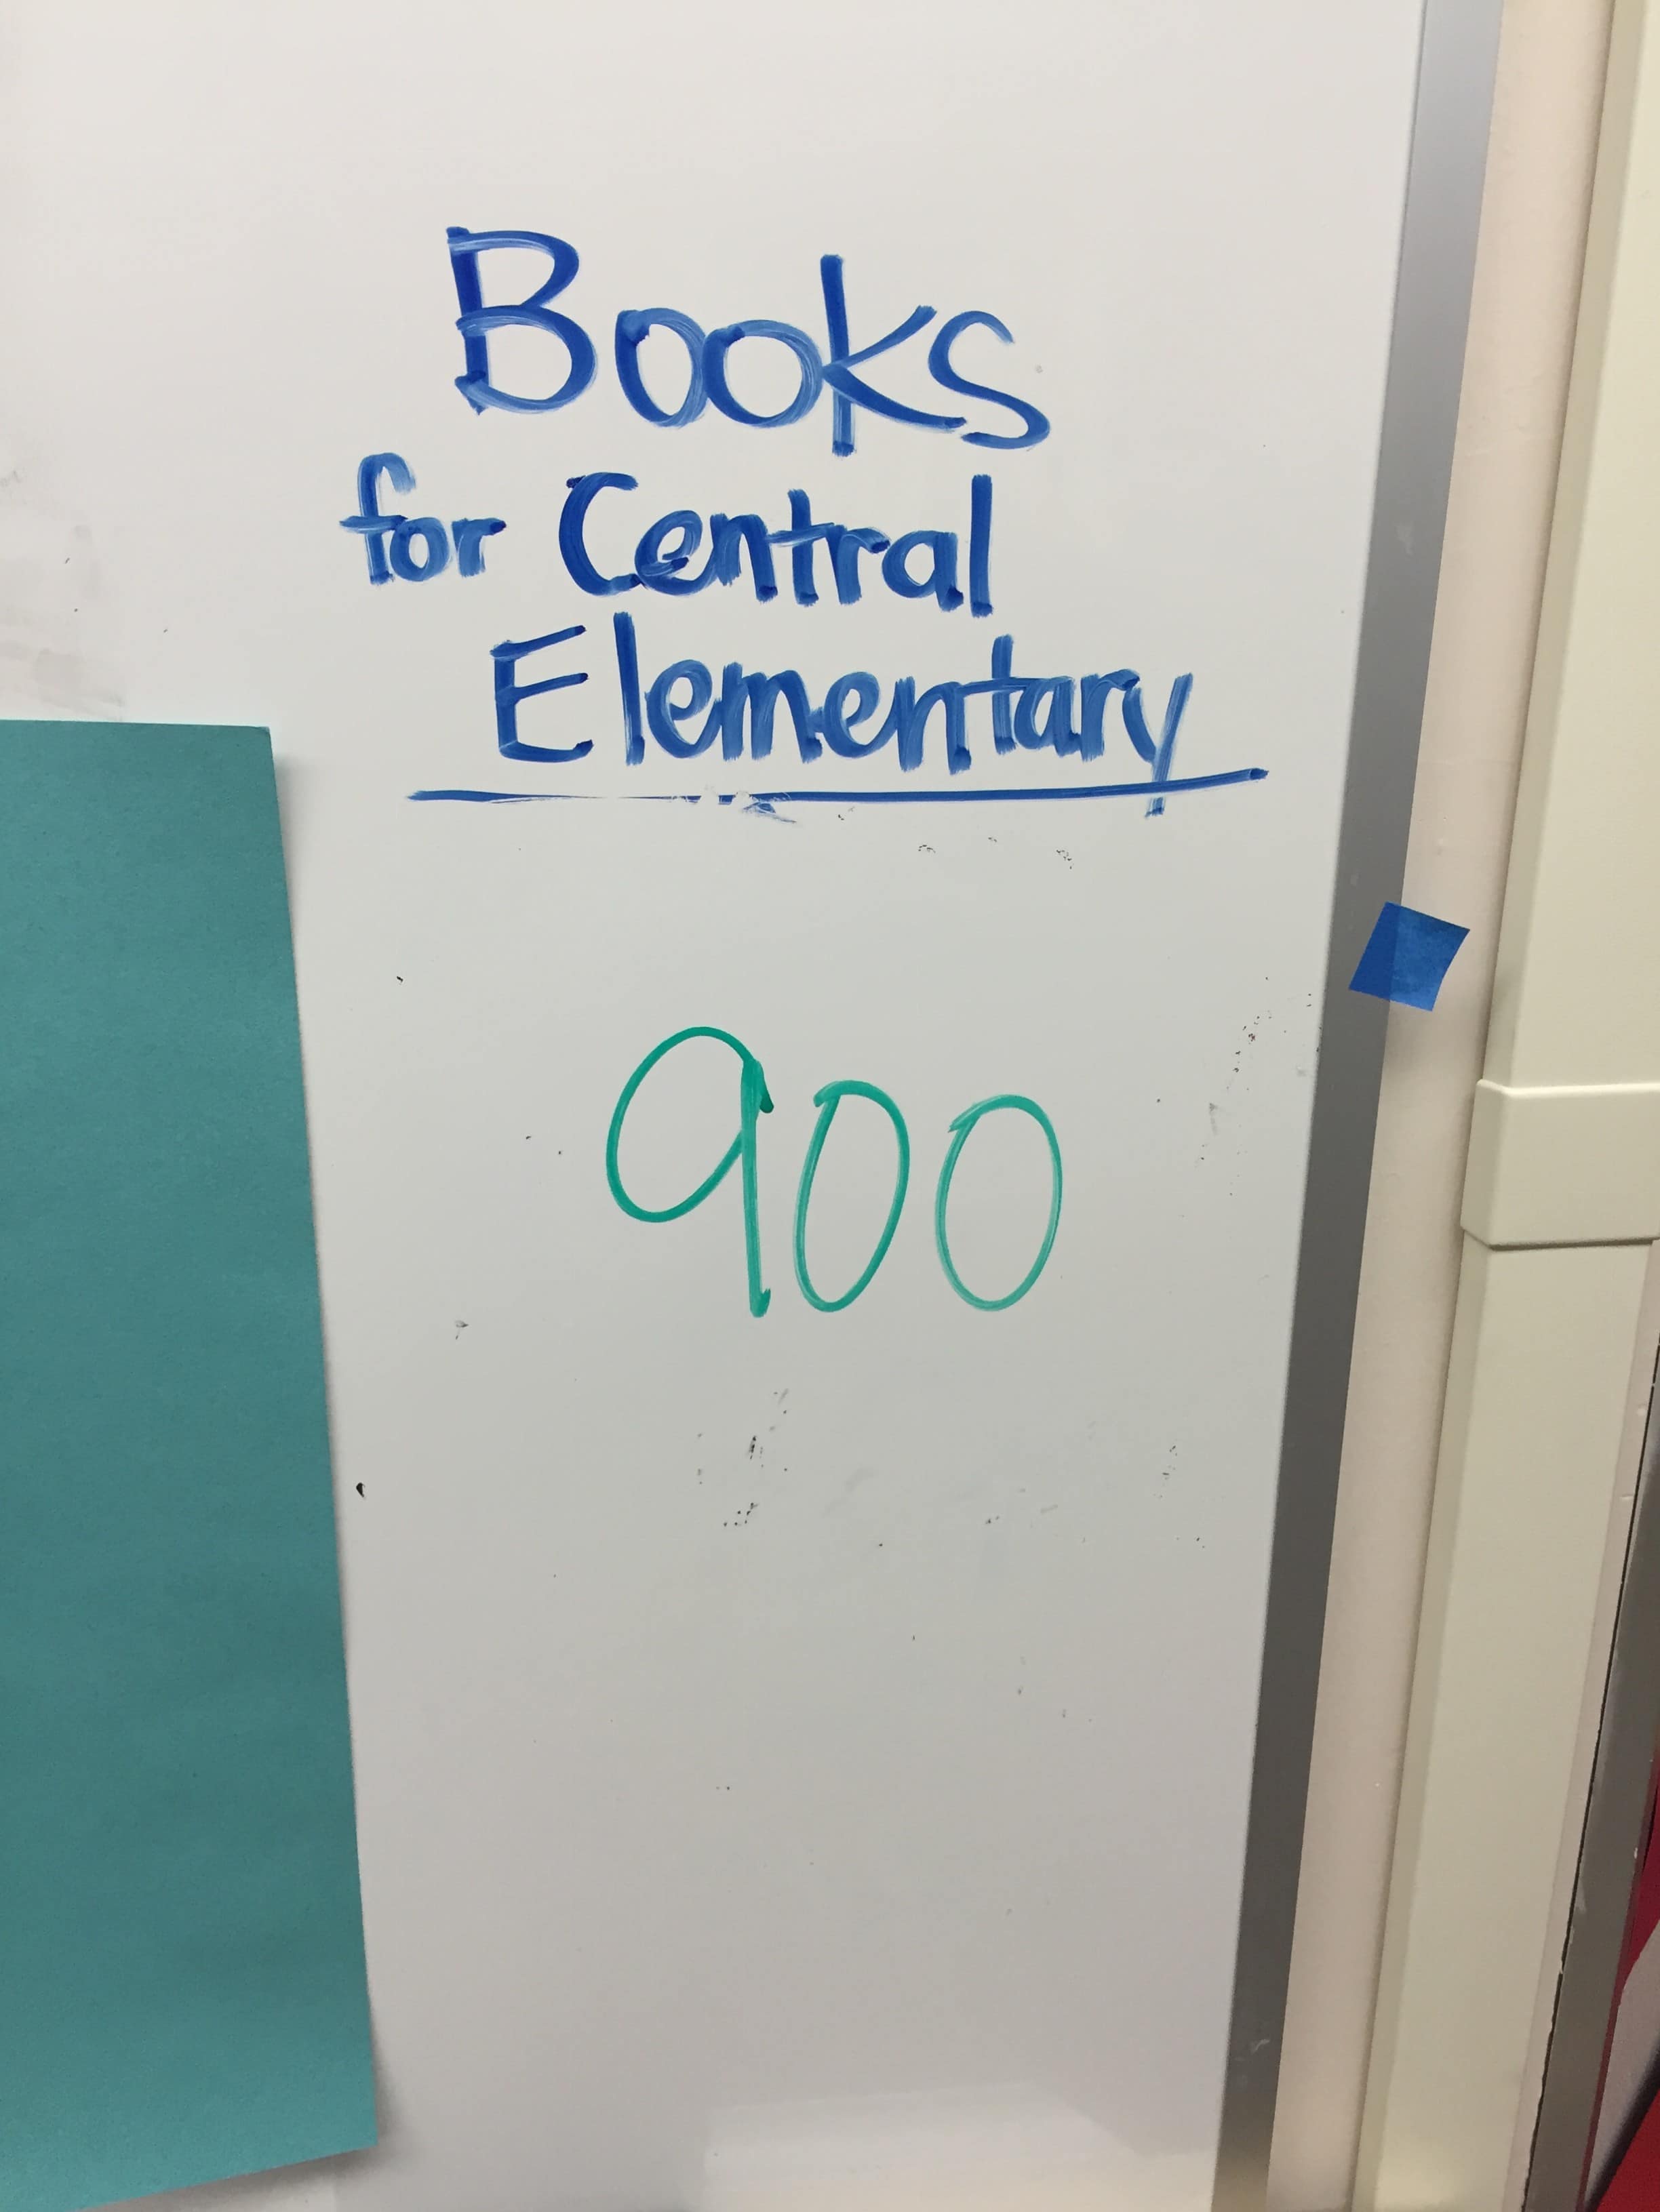 Books
for Central
Elementary
900